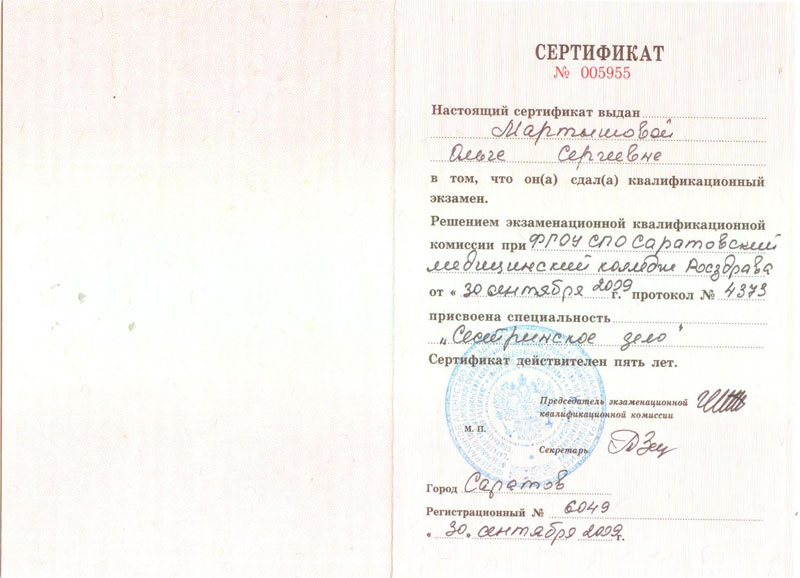 СЕРТИФИКАТ
№ 005955
Настоящий сертификат выдан
Мартышовой
Ольге Сергеевне
в том, что он(а) сдал(а) квалификационный
экзамен.
Решением экзаменационной квалификационной
комиссии при ФГОУ СПО Саратовский
медицинский колледж Росздрава
от « 30 сентября 2009 г. протокол № 4373
присвоена специальность
„Сестринское дело"
Сертификат действителен пять лет.
Председатель экзаменационной
квалификационной комиссии
М. П.
Секретарь
Город Саратов
Регистрационный № 6049
« 30 » сентября 2009 г.